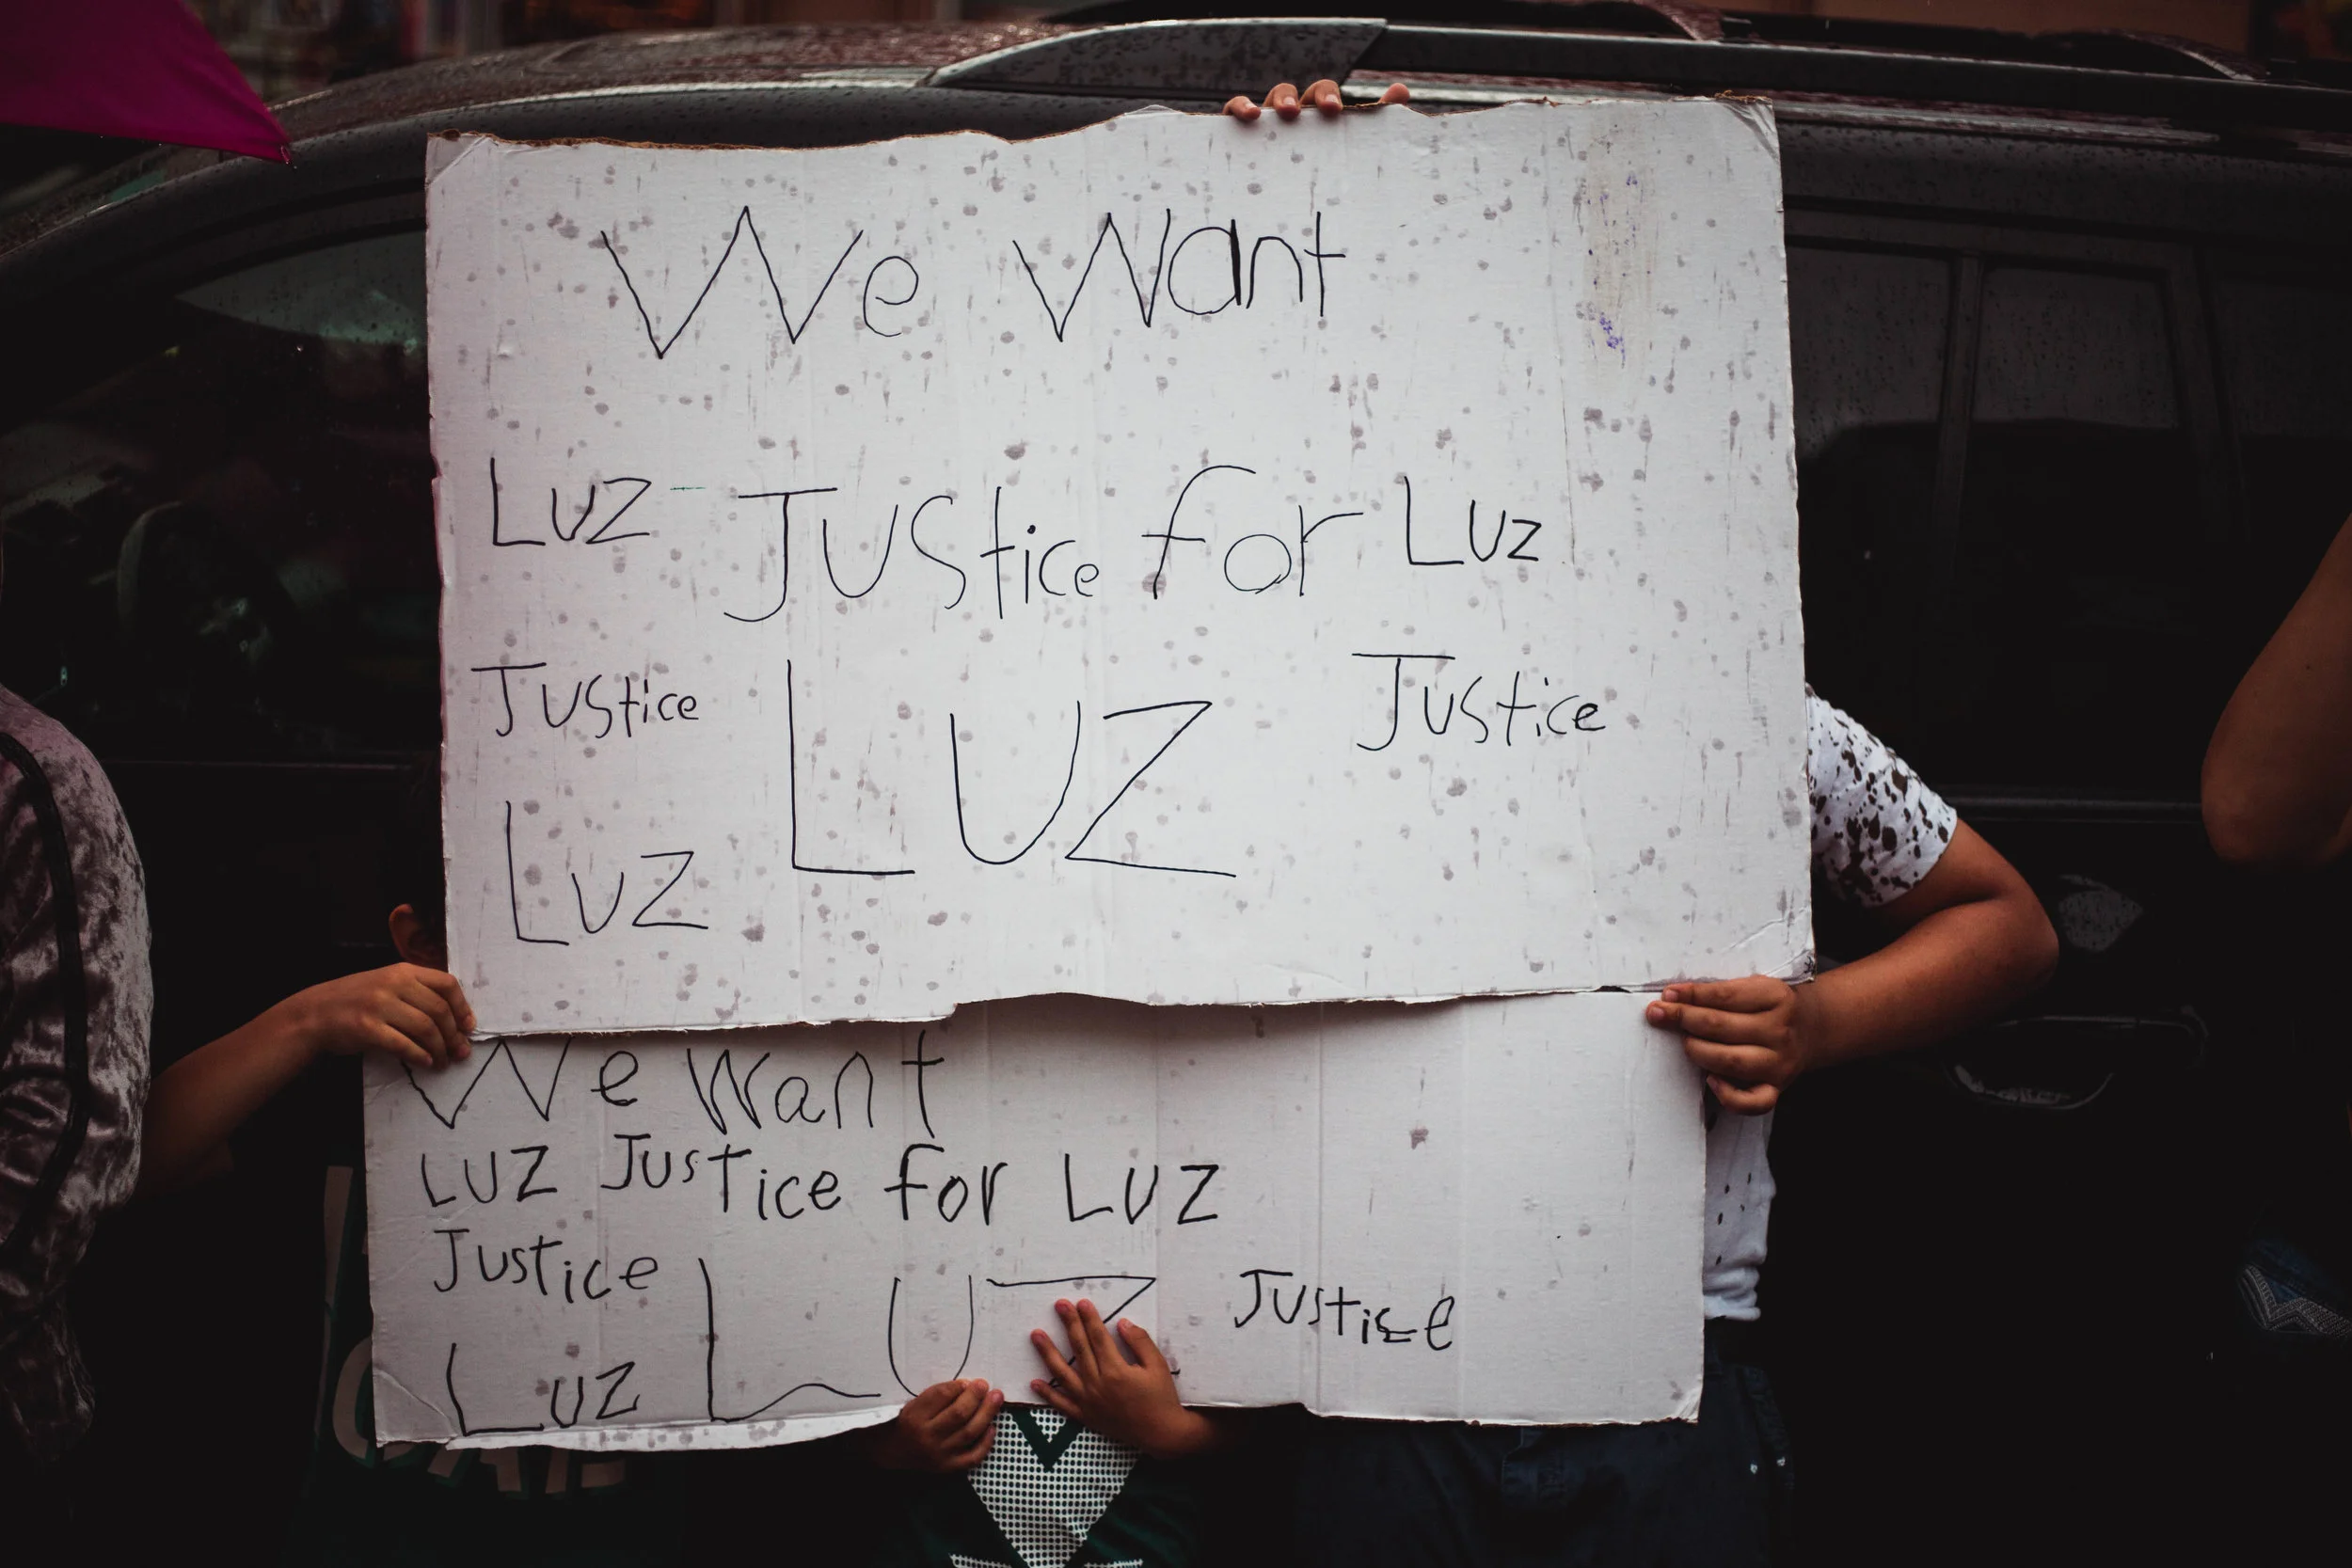 We Want
Luz Justice for Luz
Justice LUZ Justice
Luz
We Want
LUZ Justice for LUZ
Justice LUZ Justice
Luz